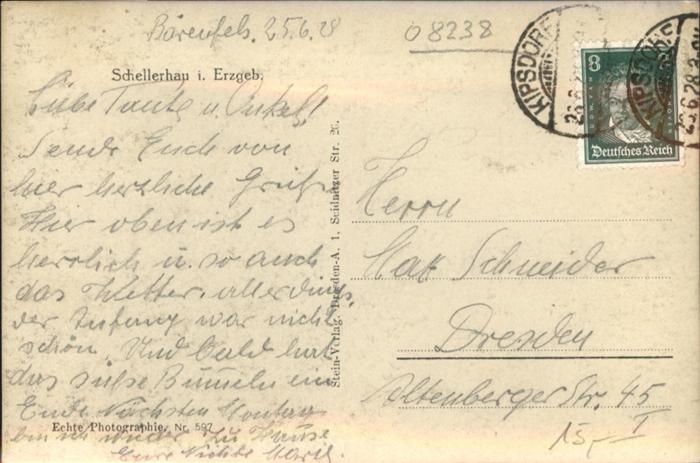 Bärenfels, 25.6.28
08238
Schellerhau i. Erzgeb.
Liebe Tante u. Onkel!
Sende Euch von
hier herzliche Grüße
Hier oben ist es
herrlich u. so auch
das Wetter, allerdings
der Anfang war nicht
schön. Und bald hat
das süße Bummeln ein
Ende. Nächsten Montag
bin ich wieder zu Hause
Eure Nichte
Echte Photographie. Nr. 597
Stein-Verlag, Dresden-A. 1, Seidnitzer Str. 26.
KIPSDORF
26.6.28
8
Deutsches Reich
KIPSDORF
26.6.28
Herrn
Max Schneider
Dresden
Altenberger Str. 45
I
15,-